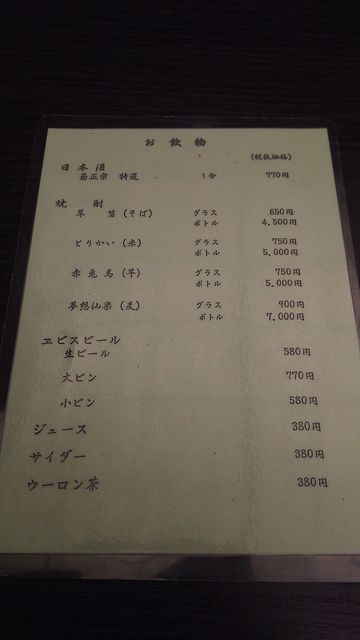 お飲物
(税抜価格)
日本酒
菊正宗 特選 1合 770円
焼酎
草笛(そば) グラス 650円
ボトル 4.500円
とりかい(米) グラス 750円
ボトル 5.000円
赤兎馬(芋) グラス 750円
ボトル 5.000円
夢想仙楽(麦) グラス 900円
ボトル 7.000円
ヱビスビール
生ビール 580円
大ビン 770円
小ビン 580円
ジュース 380円
サイダー 380円
ウーロン茶 380円